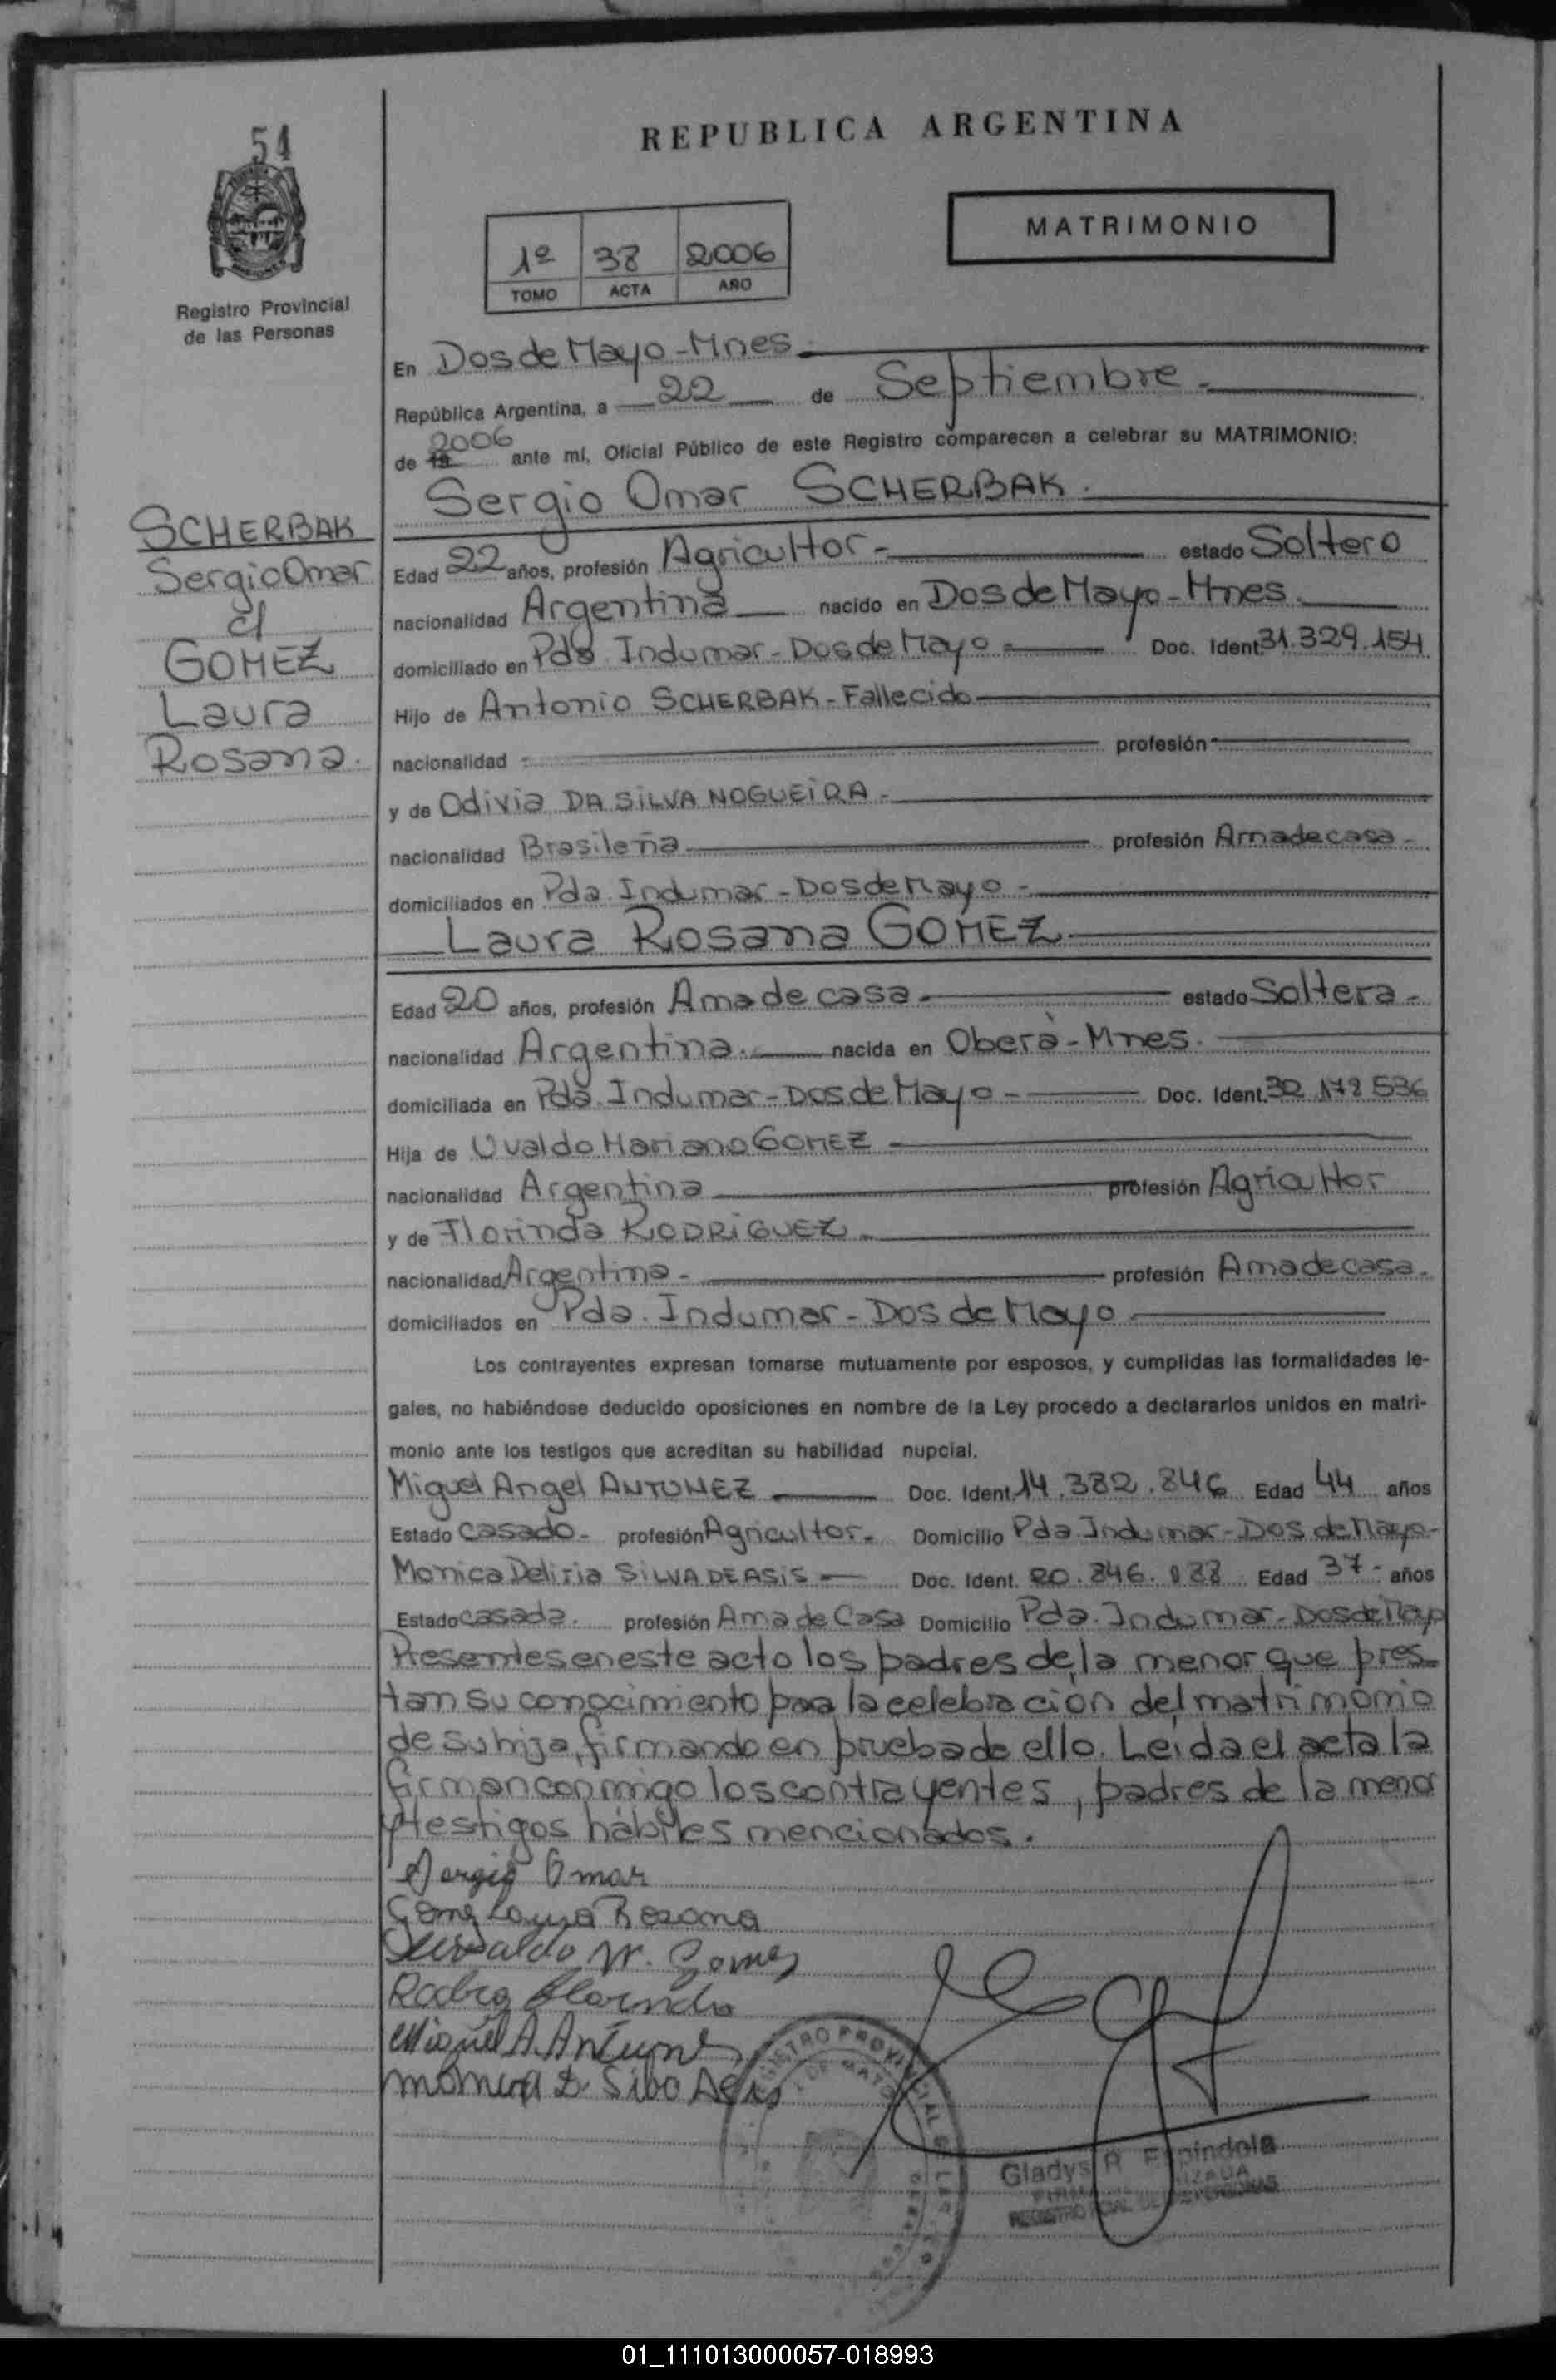 54
REPUBLICA ARGENTINA
MATRIMONIO
1º 38 2006
TOMO ACTA AÑO
Registro Provincial
de las Personas
En Dos de Mayo - Mnes.
República Argentina, a 22 de Septiembre.
de 2006 ante mí, Oficial Público de este Registro comparecen a celebrar su MATRIMONIO:
Sergio Omar SCHERBAK.
SCHERBAK
Sergio Omar
c/
GOMEZ
Laura
Rosana.
Edad 22 años, profesión Agricultor - estado Soltero
nacionalidad Argentina nacido en Dos de Mayo - Mnes.
domiciliado en Pda Indumar - Dos de Mayo - Doc. Ident. 31.329.154
Hijo de Antonio SCHERBAK - Fallecido
nacionalidad - profesión -
y de Odivia DA SILVA NOGUEIRA -
nacionalidad Brasileña profesión Ama de casa -
domiciliados en Pda. Indumar - Dos de Mayo -
Laura Rosana GOMEZ
Edad 20 años, profesión Ama de casa - estado Soltera -
nacionalidad Argentina. nacida en Oberà - Mnes.
domiciliada en Pda. Indumar - Dos de Mayo - Doc. Ident. 32.172.536
Hija de Uvaldo Mariano GOMEZ
nacionalidad Argentina profesión Agricultor
y de Florinda RODRIGUEZ.
nacionalidad Argentina - profesión Ama de casa.
domiciliados en Pda. Indumar - Dos de Mayo
Los contrayentes expresan tomarse mutuamente por esposos, y cumplidas las formalidades le-
gales, no habiéndose deducido oposiciones en nombre de la Ley procedo a declararlos unidos en matri-
monio ante los testigos que acreditan su habilidad nupcial.
Miguel Angel ANTUNEZ Doc. Ident. 14.382.846 Edad 44 años
Estado casado - profesión Agricultor - Domicilio Pda Indumar - Dos de Mayo -
Monica Deliria SILVA DE ASIS Doc. Ident. 20.846.088 Edad 37 - años
Estado casada. profesión Ama de Casa Domicilio Pda. Indumar - Dos de Mayo
Presentes en este acto los padres de la menor que pres-
tan su conocimiento para la celebracion del matrimonio
de su hija, firmando en prueba de ello. Leida el acta la
firman conmigo los contrayentes, padres de la menor
y testigos hábiles mencionados.
Sergio Omar
Gomez Laura Rosana
W. Gomez
Florinda
Miguel A. Antunes
REGISTRO PROVINCIAL
DE MAYO
Gladys R. Espindola
FIRMA AUTORIZADA
REGISTRO PCIAL. DE LAS PERSONAS
01_111013000057-018993